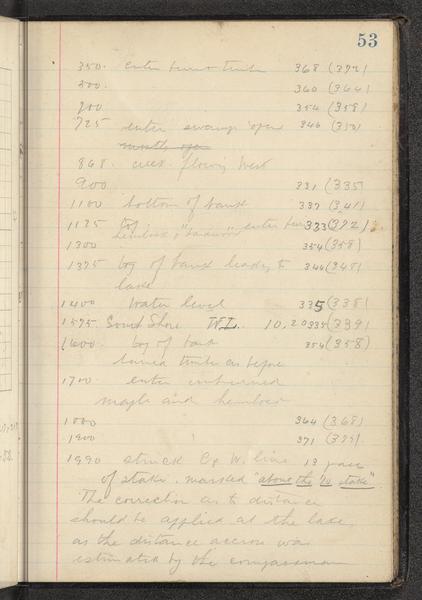 53
350. enter burnt timber 368 (372)
500. 360 (364)
700 354 (358)
725 enter swamp open 346 (350)
868. creek flowing West
900 331 (335
1100 bottom of bank 337 (341)
1125 top enter 333 (392)
hemlock &
1300 354 (358)
1375 top of bank leading to 344 (348)
lake
1400 water level 335 (338)
1575. South Shore W.L. 10.20 335 (339)
1600 top of bank 354 (358)
burned timber as before
1700 enter unburned
maple and hemlock
1800 364 (368)
1900 371 (375)
1990 struck E & W. line 13 paces
of stake. marked "above the 74 stake"
The correction as to distance
should be applied at the lake,
as the distance across was
estimated by the compassman